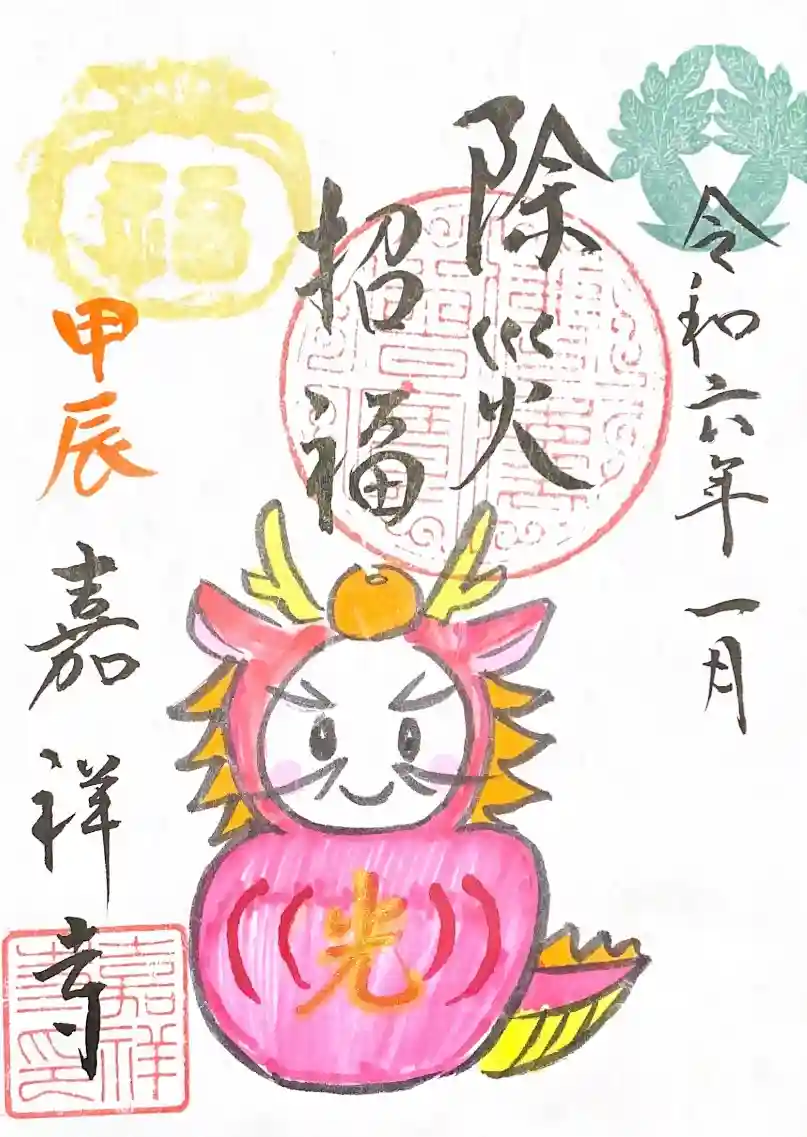 令和六年一月
除災
招福
福
甲辰
嘉祥寺
嘉祥
寺印
光